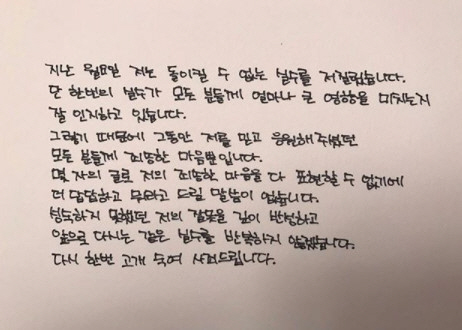 지난 월요일 저는 돌이킬 수 없는 실수를 저질렀습니다.
단 한번의 실수가 모든 분들께 얼마나 큰 영향을 미치는지
잘 인지하고 있습니다.
그렇기 때문에 그동안 저를 믿고 응원해주셨던
모든 분들께 죄송한 마음뿐입니다.
몇 자의 글로 저의 죄송한 마음을 다 표현할 수 없기에
더 답답하고 무어라고 드릴 말씀이 없습니다.
성숙하지 못했던 저의 잘못을 깊이 반성하고
앞으로 다시는 같은 실수를 반복하지 않겠습니다.
다시 한번 고개 숙여 사과드립니다.